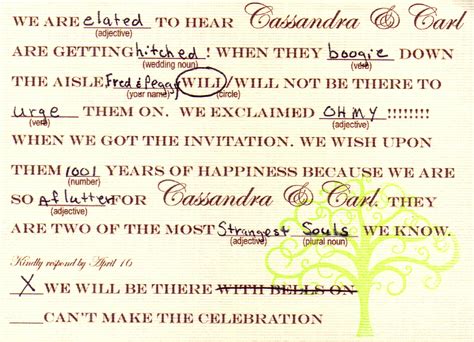 WE ARE elated TO HEAR Cassandra & Carl
(adjective)
ARE GETTING hitched! WHEN THEY boogie DOWN
(wedding noun) (verb)
THE AISLE Fred & Peggy WILL/WILL NOT BE THERE TO
(your name) (circle)
urge THEM ON. WE EXCLAIMED OH MY !!!!!!!!
(verb) (adjective)
WHEN WE GOT THE INVITATION. WE WISH UPON
THEM 1001 YEARS OF HAPPINESS BECAUSE WE ARE
(number)
SO Aflutter FOR Cassandra & Carl. THEY
(adjective)
ARE TWO OF THE MOST Strangest Souls WE KNOW.
(adjective) (plural noun)
Kindly respond by April 16
X WE WILL BE THERE WITH BELLS ON
____CAN'T MAKE THE CELEBRATION